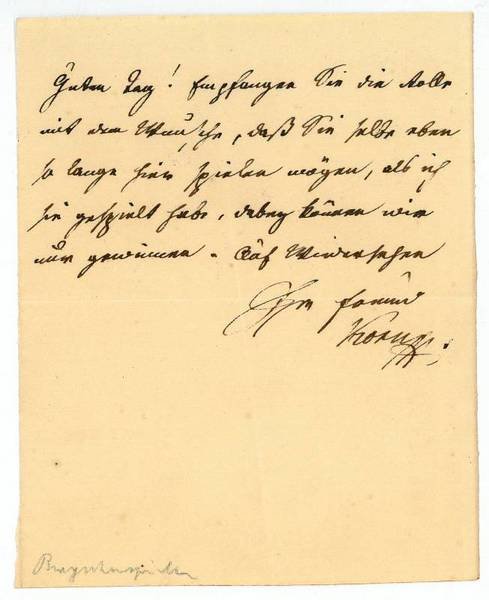 Guten Tag! Empfangen Sie die Rolle
mit dem Wunsche, daß Sie selbe eben
so lange hier spielen mögen, als ich
sie gespielt habe, dabey können wir
nur gewinnen. Auf Wiedersehen
Ihr Freund